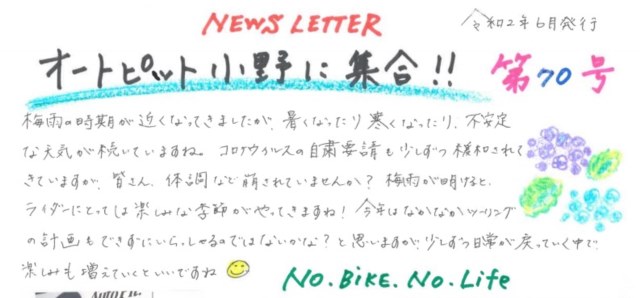 NEWS LETTER
令和2年6月発行
オートピット小野に集合!!
第70号
梅雨の時期が近くなってきましたが、暑くなったり寒くなったり、不安定
な天気が続いていますね。コロナウイルスの自粛要請も少しずつ緩和されて
きていますが、皆さん、体調など崩されていませんか?梅雨が明けると、
ライダーにとっては楽しみな季節がやってきますね!今年はなかなかツーリング
の計画もできずにいらっしゃるのではないかな?と思いますが、少しずつ日常が戻っていく中で
楽しみも増えていくといいですね
NO.BIKE.NO.Life